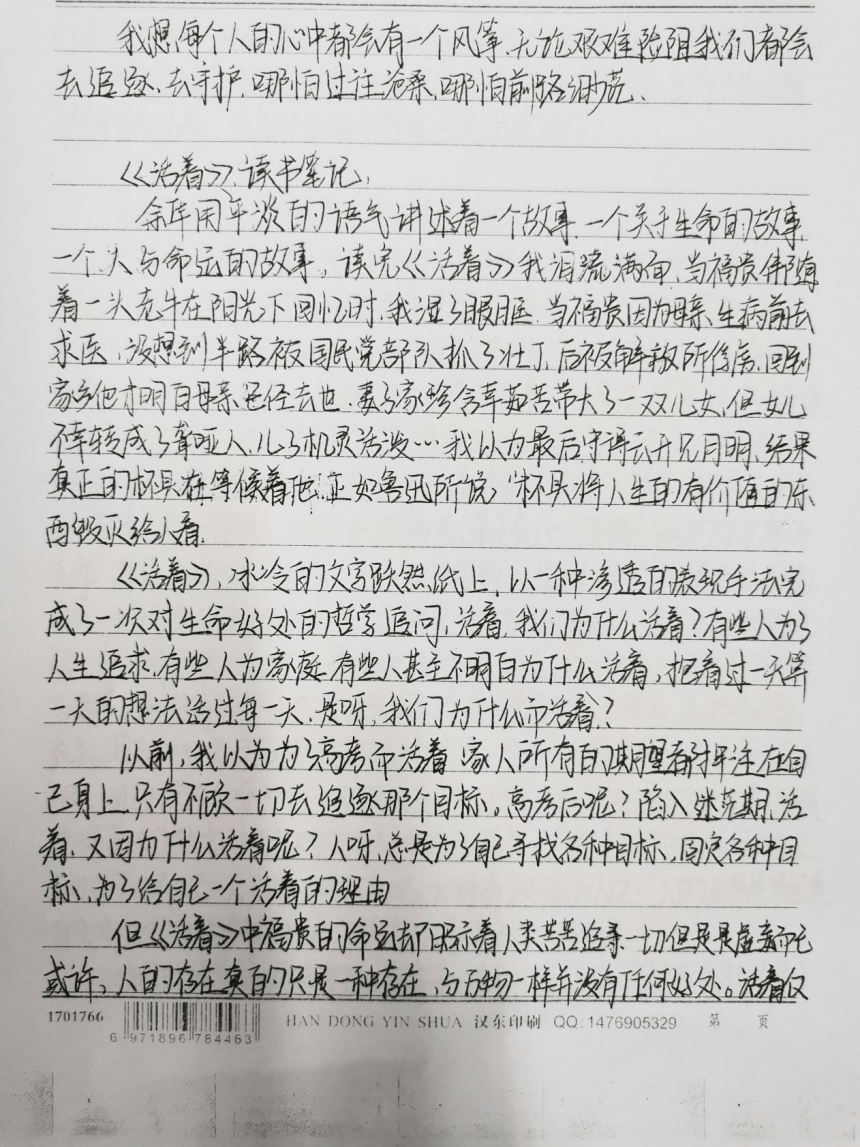 我想每个人的心中都会有一个风筝,无论艰难险阻我们都会
去追逐、去守护,哪怕过往沧桑,哪怕前路渺茫、
《活着》,读书笔记,
余华用平淡的语气讲述着一个故事,一个关于生命的故事,
一个人与命运的故事。读完《活着》我泪流满面,当福贵伴随
着一头老牛在阳光下回忆时,我湿了眼眶,当福贵因为母亲生病前去
求医,没想到半路被国民党部队抓了壮丁,后被解放所俘虏,回到
家乡他才明白母亲已经去也,妻子家珍含辛茹苦带大了一双儿女,但女儿
不幸转成了聋哑人,儿子机灵活泼…我以为最后守得云开见月明,结果
真正的杯具在等候着他,正如鲁迅所说,"杯具将人生的有价值的东
西毁灭给人看.
《活着》,冰冷的文字跃然纸上,以一种渗透的表现手法完
成了一次对生命好处的哲学追问,活着,我们为什么活着?有些人为了
人生追求,有些人为家庭,有些人甚至不明白为什么活着,抱着过一天算
一天的想法活过每一天,是呀,我们为什么而活着?
以前,我以为为了高考而活着,家人所有的期望都附注在自
己身上,只有不顾一切去追逐那个目标。高考后呢?陷入迷茫期,活
着,又因为什么活着呢?人呀,总是为了自己寻找各种目标,固定各种目
标,为了给自己一个活着的理由
但《活着》中福贵的命运却昭示着人类苦苦追寻一切但是是虚妄而已
或许,人的存在真的只是一种存在,与万物一样并没有任何好处。活着仅
1701766
6 971896 784463
HAN DONG YIN SHUA 汉东印刷 QQ:1476905329 第 页